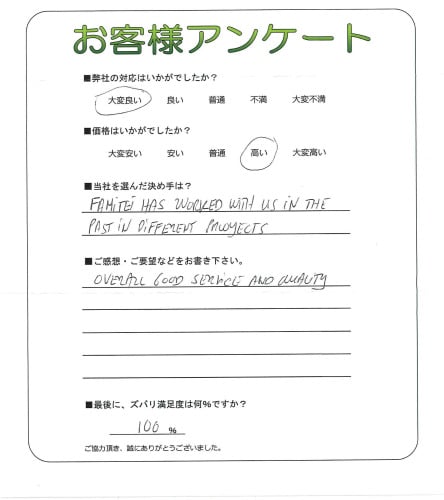 お客様アンケート
■弊社の対応はいかがでしたか？
大変良い 良い 普通 不満 大変不満
■価格はいかがでしたか？
大変安い 安い 普通 高い 大変高い
■当社を選んだ決め手は？
FAMITEI HAS WORKED WITH US IN THE
PAST IN DIFFERENT PROYECTS
■ご感想・ご要望などをお書き下さい。
OVERALL GOOD SERVICE AND QUALITY
■最後に、ズバリ満足度は何％ですか？
100 %
ご協力頂き、誠にありがとうございました。